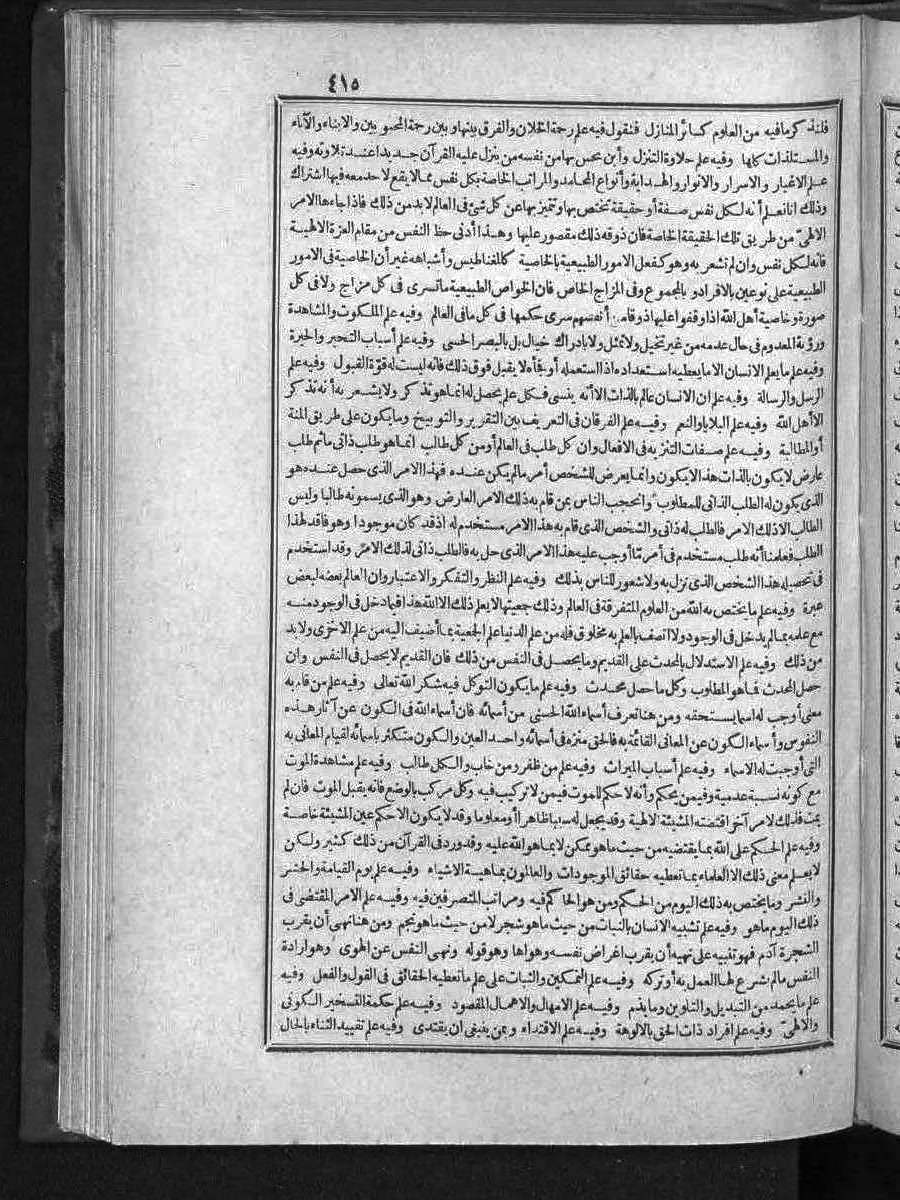 ٤١٥
فلنذكر ما فيه من العلوم كسائر المنازل فنقول فيه علم رحمة الخلان والفرق بينها وبين رحمة المحبوبين والابناء والآباء
والمستلذات كلها وفيه علم حلاوة التنزل وأين يحس بها من نفسه من ينزل عليه القرآن جديدا عند تلاوته وفيه
علم الاغيار والاسرار والانوار والهداية وأنواع المحامد والمراتب الخاصة بكل نفس مما لا يقع لاحد معه فيها اشتراك
وذلك انا نعلم أنه لكل نفس صفة أو حقيقة تختص بها وتتميز بها عن كل شئ في العالم لابد من ذلك فاذا جاءها الامر
الالهىّ من طريق تلك الحقيقة الخاصة فان ذوقه ذلك مقصور عليها وهذا أدنى حظ النفس من مقام العزة الالهية
فانه لكل نفس وان لم تشعر به وهو كفعل الامور الطبيعية بالخاصية كالمغناطيس وأشباهه غير أن الخاصية في الامور
الطبيعية على نوعين بالافراد وبالمجموع وفي المزاج الخاص فان الخواص الطبيعية ما تسرى في كل مزاج ولا في كل
صورة وخاصية أهل الله اذا وقفوا عليها ذوقا من أنفسهم سرى حكمها في كل ما في العالم وفيه علم الملكوت والمشاهدة
ورؤية المعدوم في حال عدمه من غير تخيل ولا تمثل ولا بادراك خيال بل بالبصر الحسى وفيه علم أسباب التحير والحيرة
وفيه علم ما يعلم الانسان الا ما يعطيه استعداده اذا استعمله أو فجأه لا يقبل فوق ذلك فانه ليست له قوّة القبول وفيه علم
الرسل والرسالة وفيه علم ان الانسان عالم بالذات الا أنه ينسى فكل علم يحصل له انما هو تذكر ولا يشعر به أنه تذكر
الا أهل الله وفيه علم البلايا والنعم وفيه علم الفرقان في التعريف بين التقرير والتوبيخ وما يكون على طريق المنة
أو المطالبة وفيه علم صفات التنزيه في الافعال وان كل طلب في العالم أو من كل طالب انما هو طلب ذاتى ما ثم طلب
عارض لا يكون بالذات هذا لا يكون وانما يعرض للشخص أمر ما لم يكن عنده فهذا الامر الذى حصل عنده هو
الذى يكون له الطلب الذاتى للمطلوب وانحجب الناس بمن قام به ذلك الامر العارض وهو الذى يسمونه طالبا وليس
الطالب الا ذلك الامر فالطلب له ذاتى والشخص الذى قام به هذا الامر مستخدم له اذ قد كان موجودا وهو فاقد لهذا
الطلب فعلمنا أنه طلب مستخدم في أمر مّا أوجب عليه هذا الامر الذى حل به فالطلب ذاتى لذلك الامر وقد استخدم
في تحصيله هذا الشخص الذى نزل به ولا شعور للناس بذلك وفيه علم النظر والتفكر والاعتبار وان العالم بعضه لبعض
عبرة وفيه علم ما يختص به الله من العلوم المتفرقة في العالم وذلك جمعيتها لا يعلم ذلك الا الله هذا فيما دخل في الوجود منه
مع علمه بما لم يدخل في الوجود ولا اتصف بالعلم به مخلوق فله من علم الدنيا علم الجمعية بما أضيف اليه من علم الاخرى ولا بد
من ذلك وفيه علم الاستدلال بالمحدث على القديم وما يحصل في النفس من ذلك فان القديم لا يحصل في النفس وان
حصل المحدث فما هو المطلوب وكل ما حصل محدث وفيه علم ما يكون التوكل فيه شكر الله تعالى وفيه علم من قام به
معنى أوجب له اسما يستحقه ومن هنا تعرف أسماء الله الحسنى من أسمائه فان أسماء الله في الكون عن آثار هذه
النفوس وأسماء الكون عن المعانى القائمة به فالحق منزه في أسمائه واحد العين والكون متكثر باسمائه لقيام المعانى به
التى أوجبت له الاسماء وفيه علم أسباب الميراث وفيه علم من ظفر ومن خاب والكل طالب وفيه علم مشاهدة الموت
مع كونه نسبة عدمية وفيمن يحكم وأنه لا حكم للموت فيمن لا تركيب فيه وكل مركب بالوضع فانه يقبل الموت فان لم
يمت فذلك لامر آخر اقتضته المشيئة الالهية وقد يجعل له سببا ظاهرا أو معلوما وقد لا يكون الا حكم عين المشيئة خاصة
وفيه علم الحكم على الله بما يقتضيه من حيث ما هو ممكن لا بما هو الله عليه وقد ورد في القرآن من ذلك كثير ولكن
لا يعلم معنى ذلك الا العلماء بما تعطيه حقائق الموجودات والعالمون بماهية الاشياء وفيه علم يوم القيامة والحشر
والنشر وما يختص به ذلك اليوم من الحكم ومن هو الحاكم فيه ومراتب المتصرفين فيه وفيه علم الامر المقتضى في
ذلك اليوم ما هو وفيه علم تشبيه الانسان بالنبات من حيث ما هو شجر لا من حيث ما هو نجم ومن هنا نهى أن يقرب
الشجرة آدم فهو تنبيه على نهيه أن يقرب اغراض نفسه وهواها وهو قوله ونهى النفس عن الهوى وهو ارادة
النفس ما لم يشرع لها العمل به أو تركه وفيه علم التمكين والثبات على علم ما تعطيه الحقائق في القول والفعل وفيه
علم ما يحمد من التبديل والتلوين وما يذم وفيه علم الامهال والاهمال المقصود وفيه علم حكمة التسخير الكونى
والالهىّ وفيه علم افراد ذات الحق بالالوهة وفيه علم الاقتداء وبمن ينبغى أن يقتدى وفيه علم تقييد الثناء بالحال